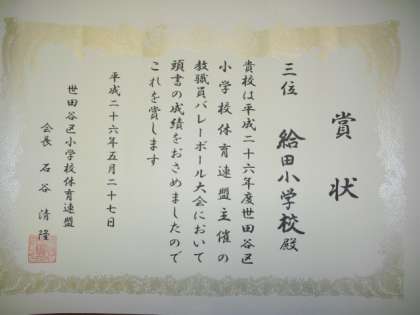 賞状
三位 給田小学校殿
貴校は平成二十六年度世田谷区
小学校体育連盟主催の
教職員バレーボール大会において
頭書の成績をおさめましたので
これを賞します
平成二十六年五月二十七日
世田谷区小学校体育連盟
会長 石谷清隆